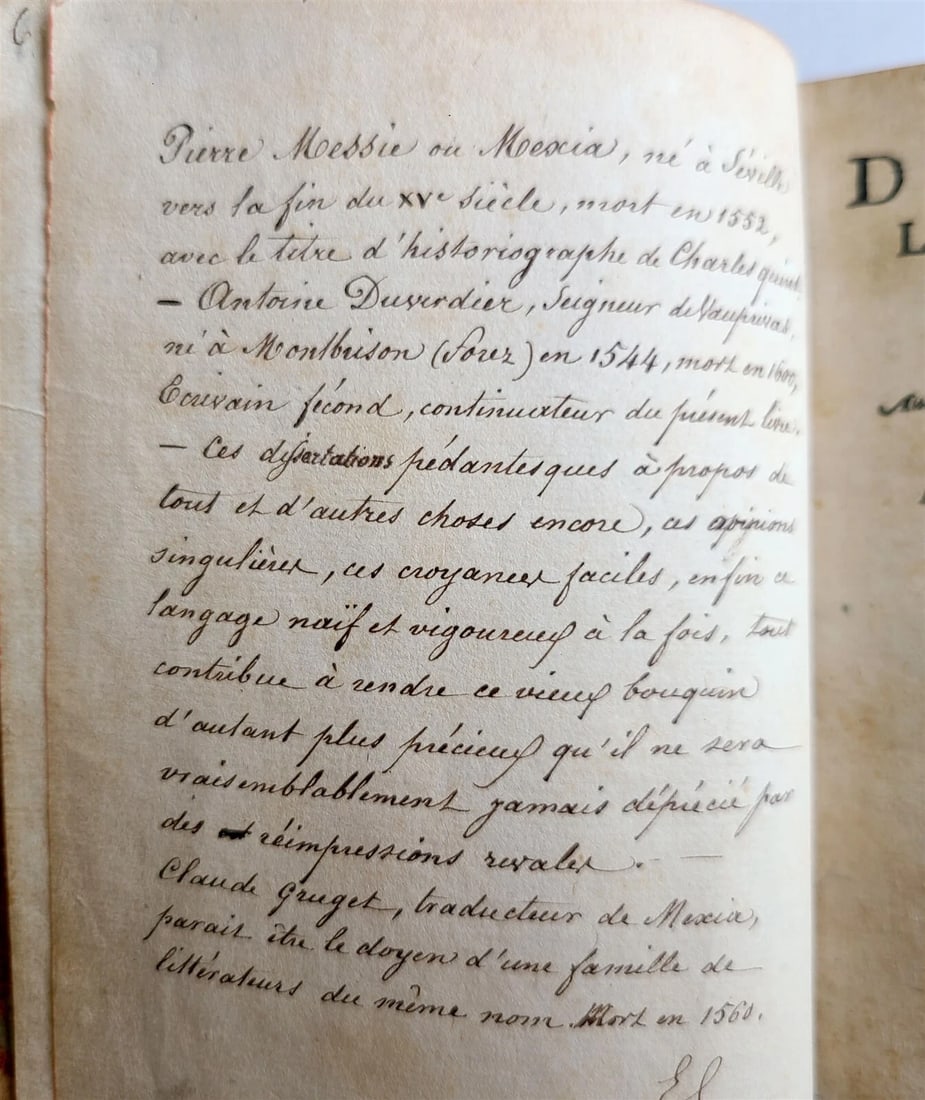 6
Pierre Messie ou Mexia, né à Séville
vers la fin du XVe siècle, mort en 1552,
avec le titre d'historiographe de Charles quint.
— Antoine Duverdier, Seigneur de Vauprivas,
né à Montbrison (Forez) en 1544, mort en 1600,
Ecrivain fécond, continuateur du présent livre.
— Ces dissertations pédantesques à propos de
tout et d'autres choses encore, ces opinions
singulières, ces croyances faciles, enfin ce
langage naïf et vigoureux à la fois, tout
contribue à rendre ce vieux bouquin
d'autant plus précieux qu'il ne sera
vraisemblablement jamais déprécié par
des réimpressions rivales. —
Claude Gruget, traducteur de Mexia,
parait être le doyen d'une famille de
littérateurs du même nom. Mort en 1560.
D
L